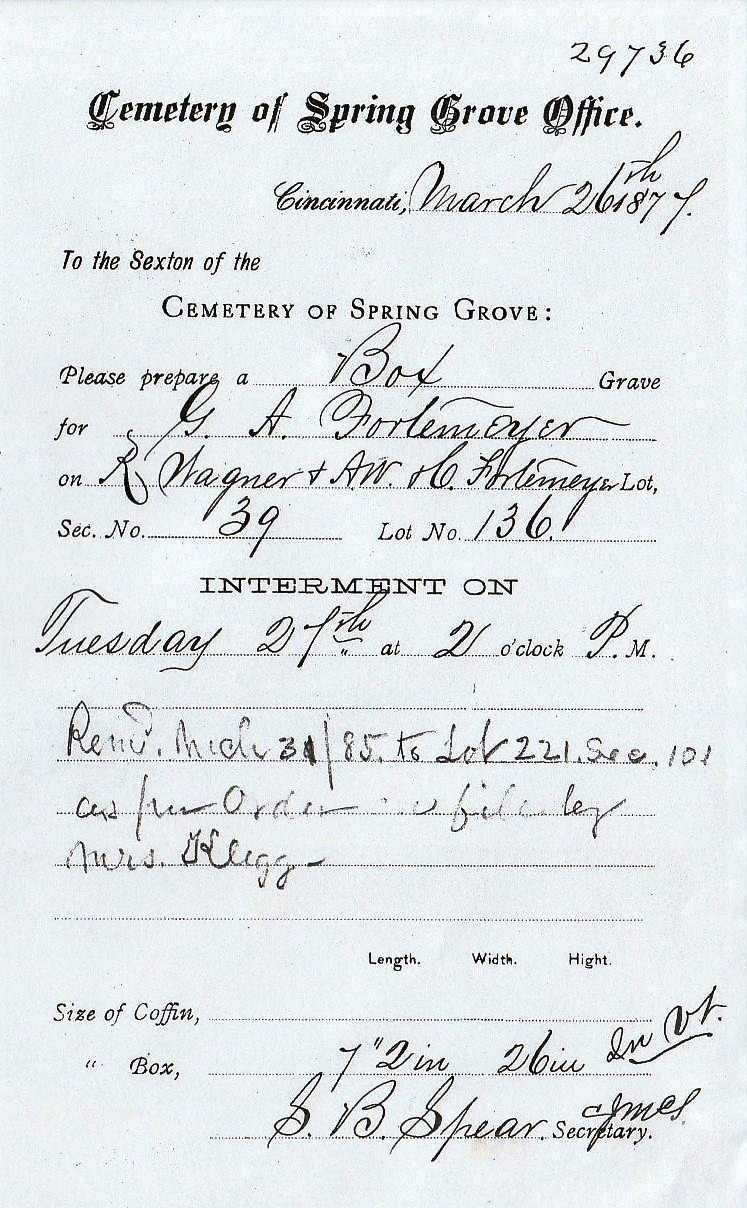 29736
Cemetery of Spring Grove Office.
Cincinnati, March 26th 1877.
To the Sexton of the
CEMETERY OF SPRING GROVE:
Please prepare a Box Grave
for G. A. Fortemeyer
on R Wagner & A.W. & C. Fortemeyer Lot,
Sec. No. 39 Lot No. 136.
INTERMENT ON
Tuesday 27th at 2 o'clock P. M.
Remd. Mch 31/85. to Lot 221. Sec. 101
as per Order on file by
Mrs. Klegg -
Length. Width. Hight.
Size of Coffin,
" Box, 7"2 in 26 in In Vt.
S. B. Spear. Secretary.